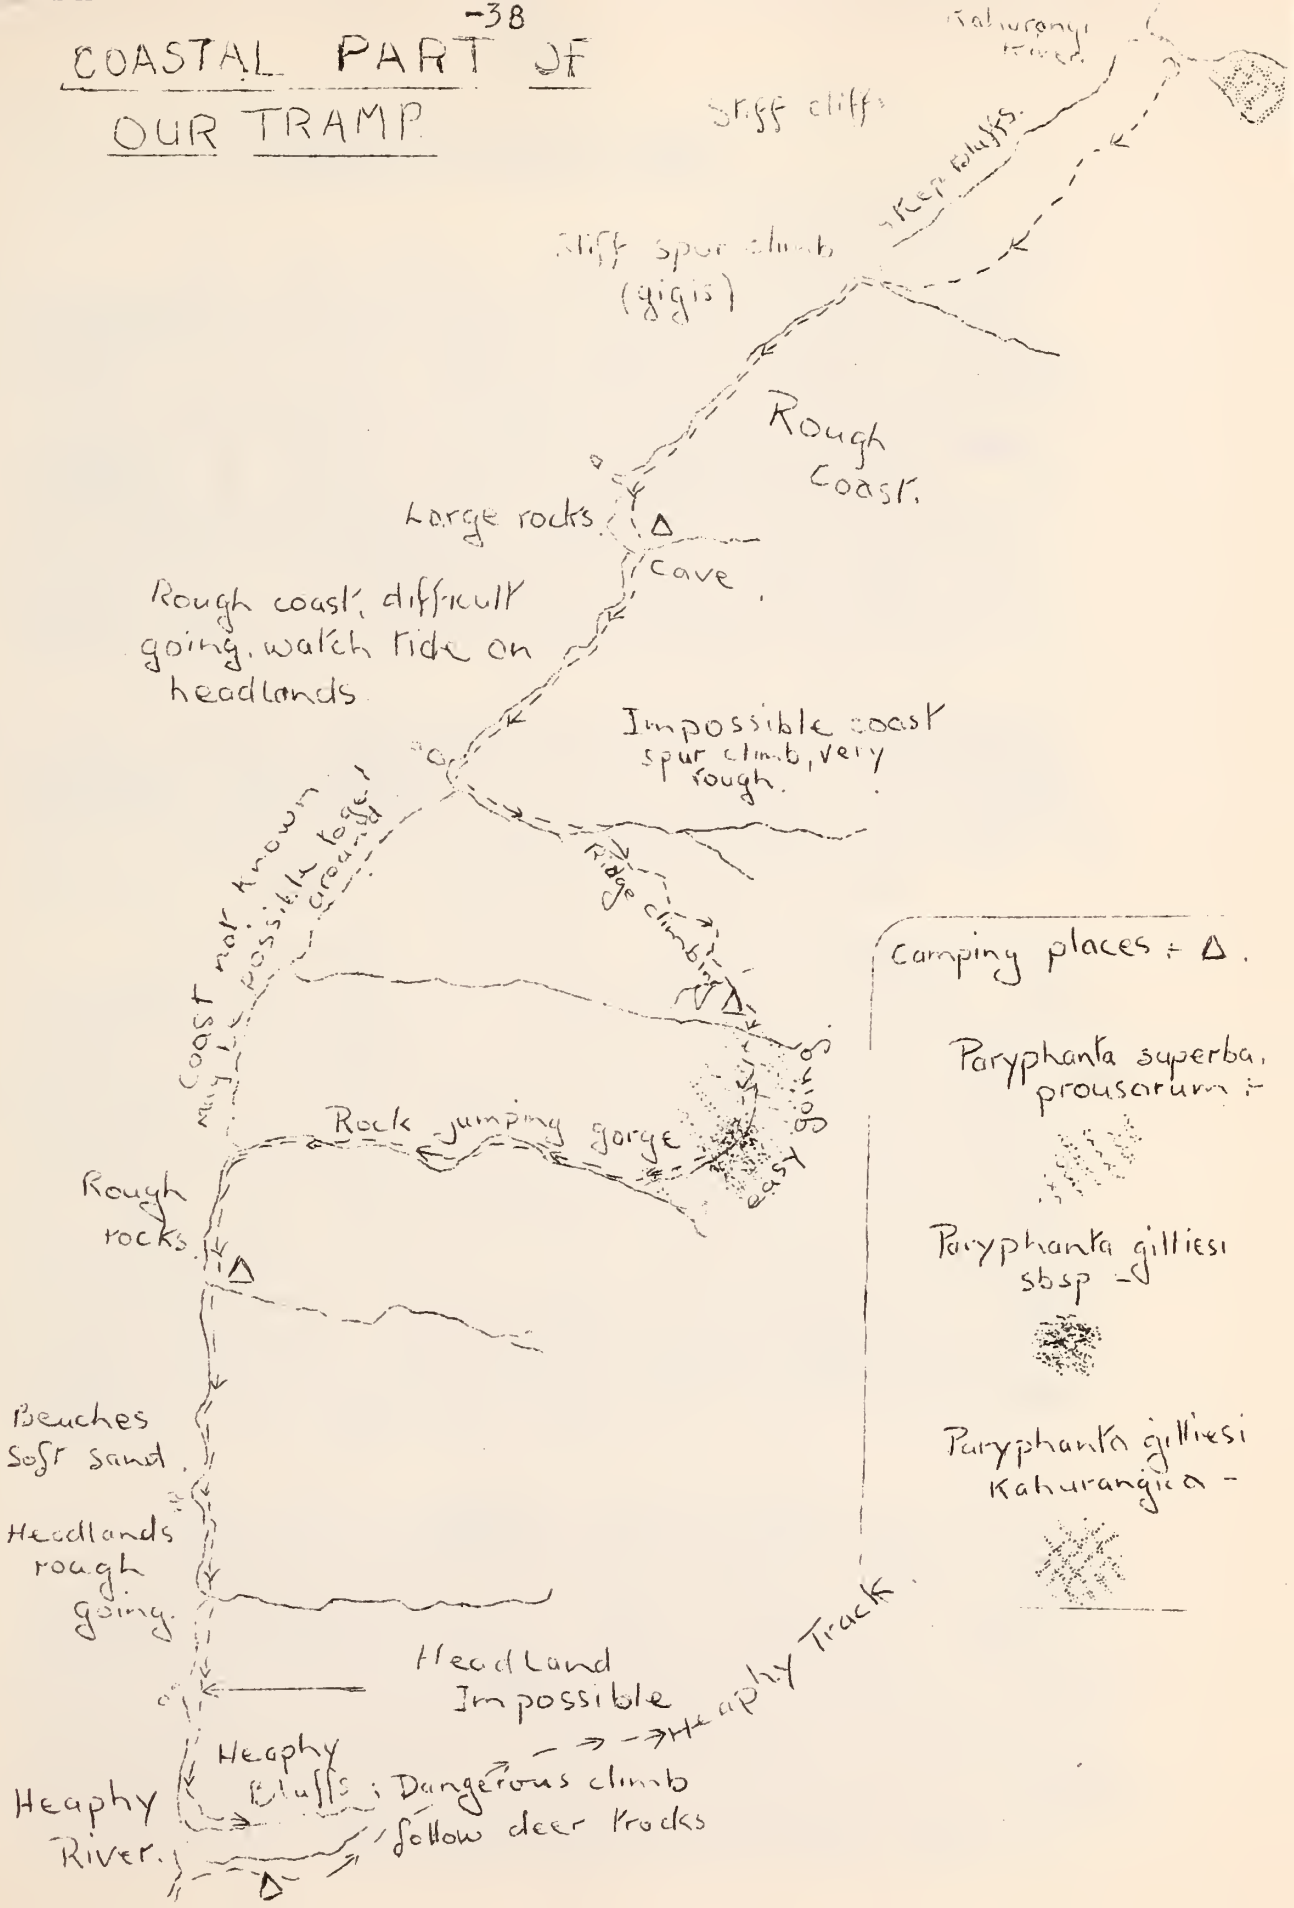 -38
COASTAL PART OF
OUR TRAMP
Kahurangi
River
Stiff cliffs
Kep Bluffs.
Stiff spur climb
(gigis)
Rough
Coast.
Large rocks.
Δ
Cave
Rough coast, difficult
going, watch tide on
headlands
Impossible coast
spur climb, very
rough.
Coast not known
May be possible to get
around
Ridge climbing
Δ
easy going.
Rock jumping gorge
Rough
rocks.
Δ
Beaches
Soft sand.
Headlands
rough
going.
Headland
Impossible
Heaphy Track
Heaphy
Bluffs; Dangerous climb
follow deer tracks
Heaphy
River.
Δ
Camping places :- Δ.
Paryphanta superba.
prousarum :-
Paryphanta gilliesi
sbsp -
Paryphanta gilliesi
Kahurangica -